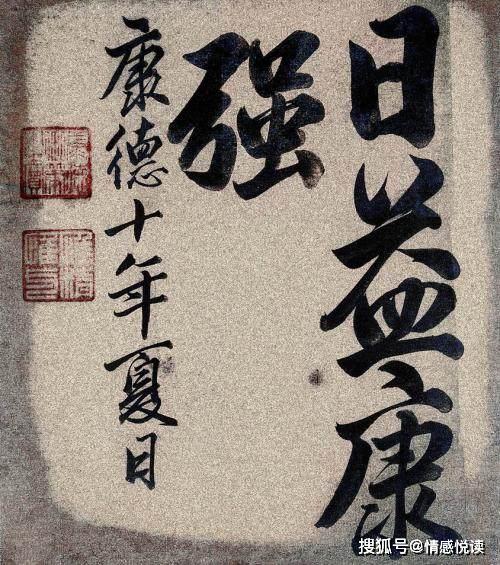 日益康
强
康德十年夏日
搜狐号@情感悦读